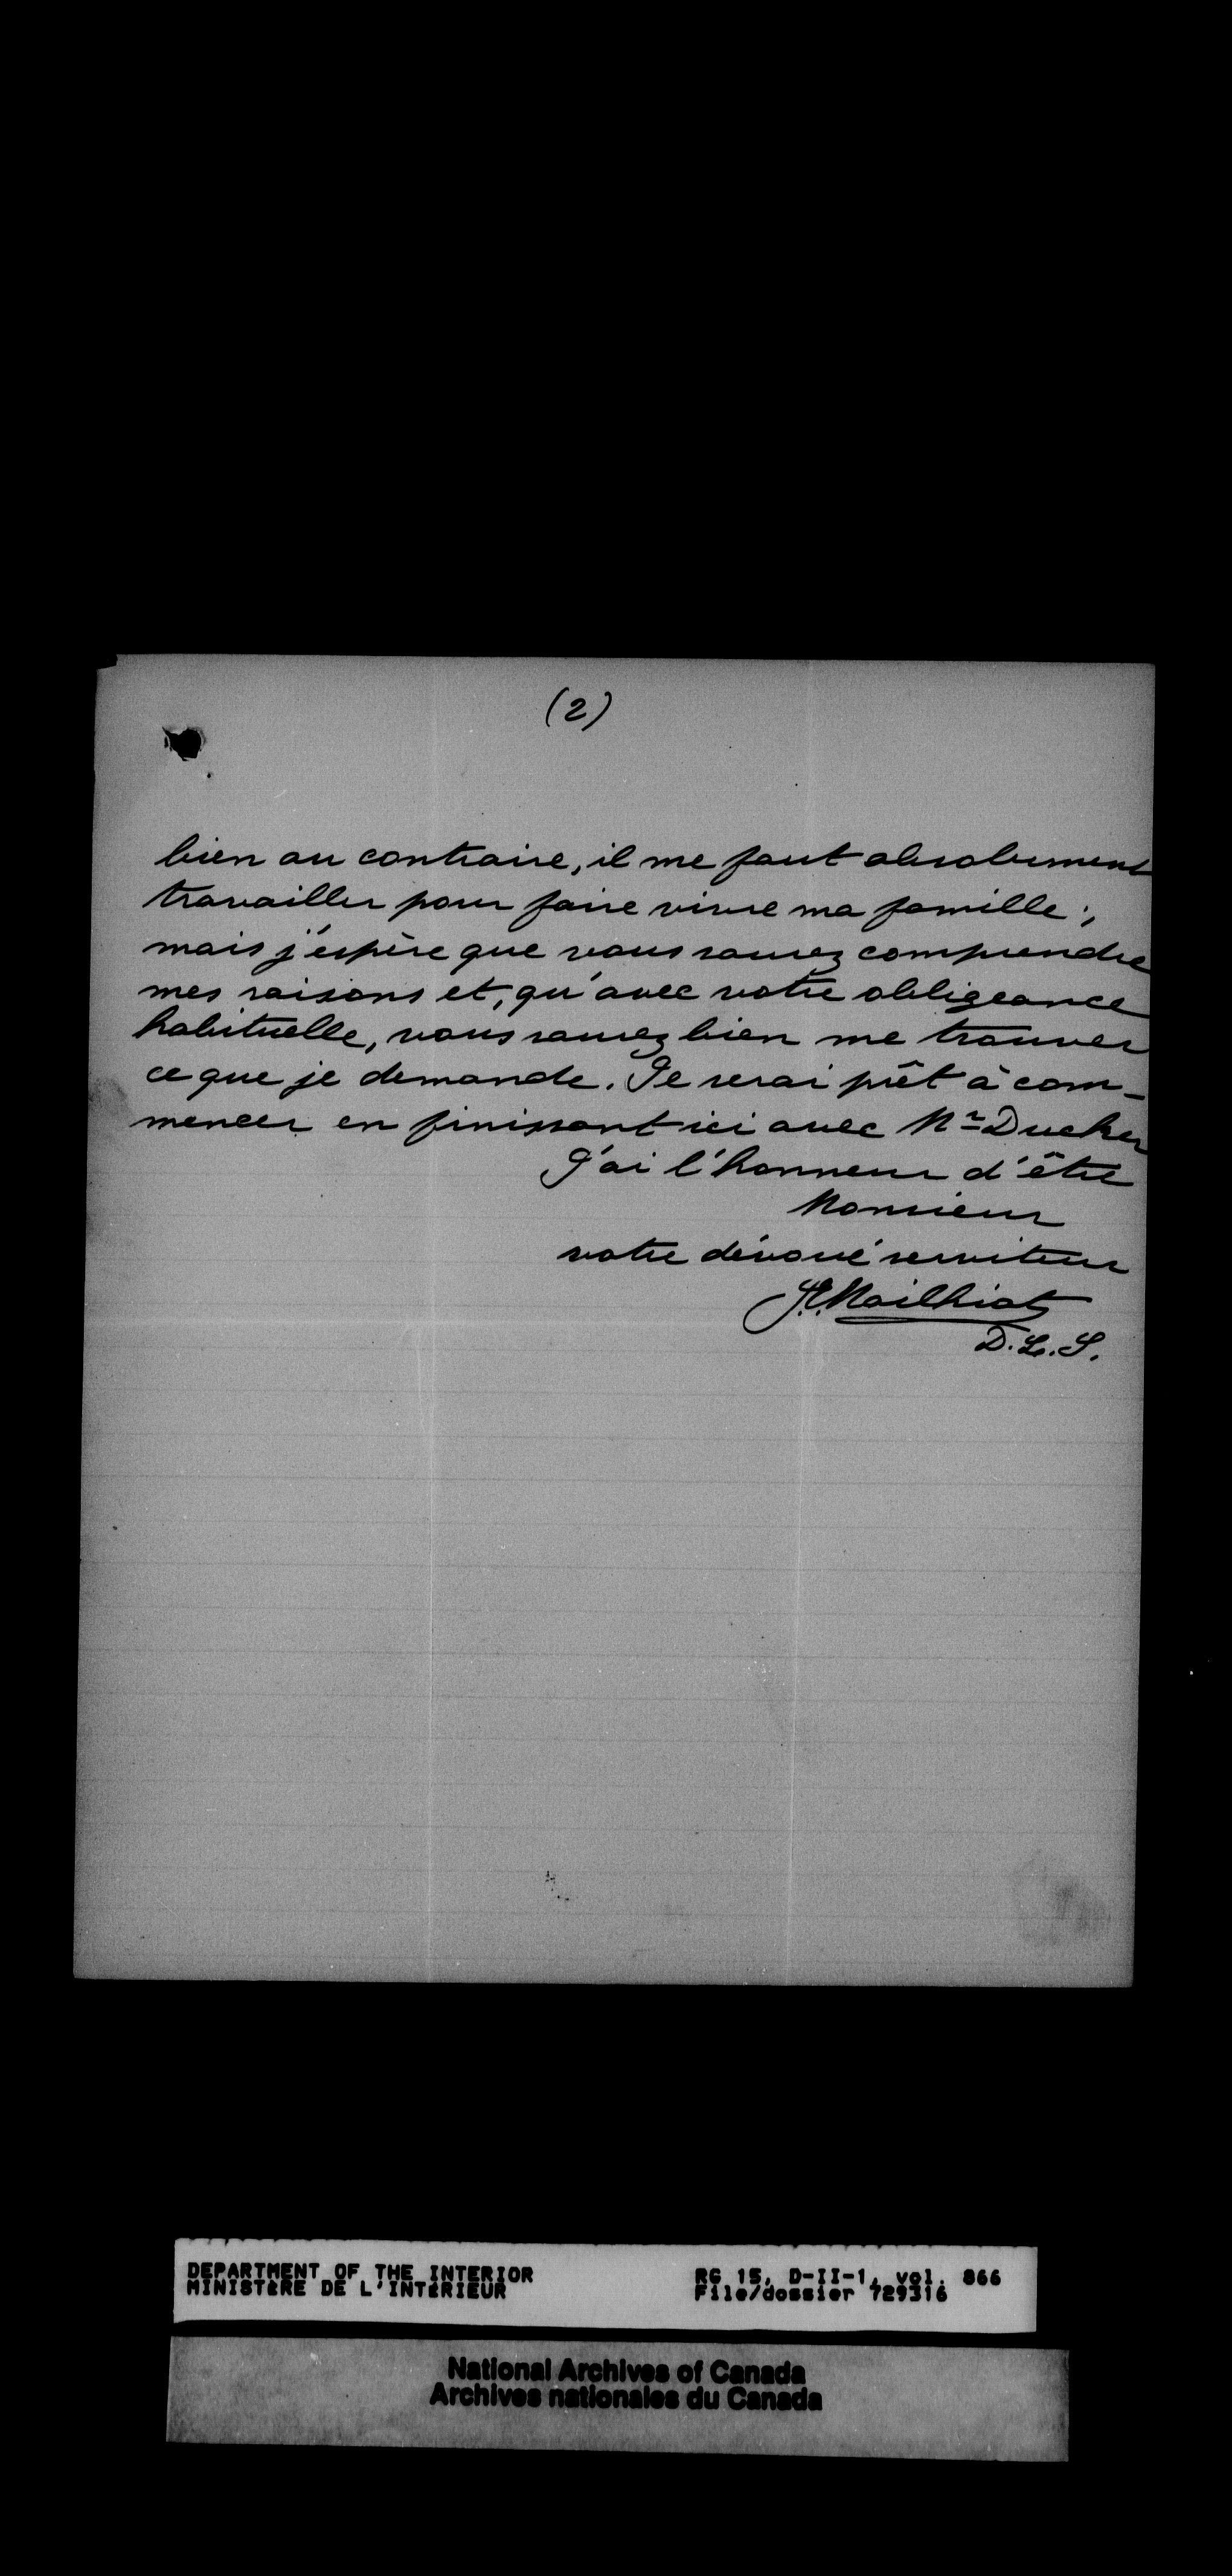 (2)
bien au contraire, il me faut absolument
travailler pour faire vivre ma famille ;
mais j'espère que vous saurez comprendre
mes raisons et, qu'avec votre obligeance
habituelle, vous saurez bien me trouver
ce que je demande. Je serai prêt à com-
mencer en finissant ici avec Mr Ducker
J'ai l'honneur d'être
Monsieur
votre dévoué serviteur
Mailhiot
D.L.S.
DEPARTMENT OF THE INTERIOR RG 15, D-II-1, vol. 866
MINISTÈRE DE L'INTÉRIEUR File/dossier 729316
National Archives of Canada
Archives nationales du Canada